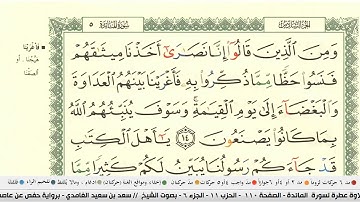 الجزء السادس سورة المائدة ٥
وَمِنَ الَّذِينَ قَالُوا إِنَّا نَصَارَىٰ أَخَذْنَا مِيثَاقَهُمْ
فَنَسُوا حَظًّا مِمَّا ذُكِّرُوا بِهِ فَأَغْرَيْنَا بَيْنَهُمُ الْعَدَاوَةَ
وَالْبَغْضَاءَ إِلَىٰ يَوْمِ الْقِيَامَةِ وَسَوْفَ يُنَبِّئُهُمُ اللَّهُ
بِمَا كَانُوا يَصْنَعُونَ ١٤ يَا أَهْلَ الْكِتَابِ
قَدْ جَاءَكُمْ رَسُولُنَا يُبَيِّنُ لَكُمْ كَثِيرًا مِمَّا
فأغرينا
هيّجنا، أو
ألصقنا
وة عطرة لسورة المائدة - الصفحة ١١٠ - الجزء ٦ - بصوت الشيخ // سعد بن سعيد الغامدي - برواية حفص عن عاصم